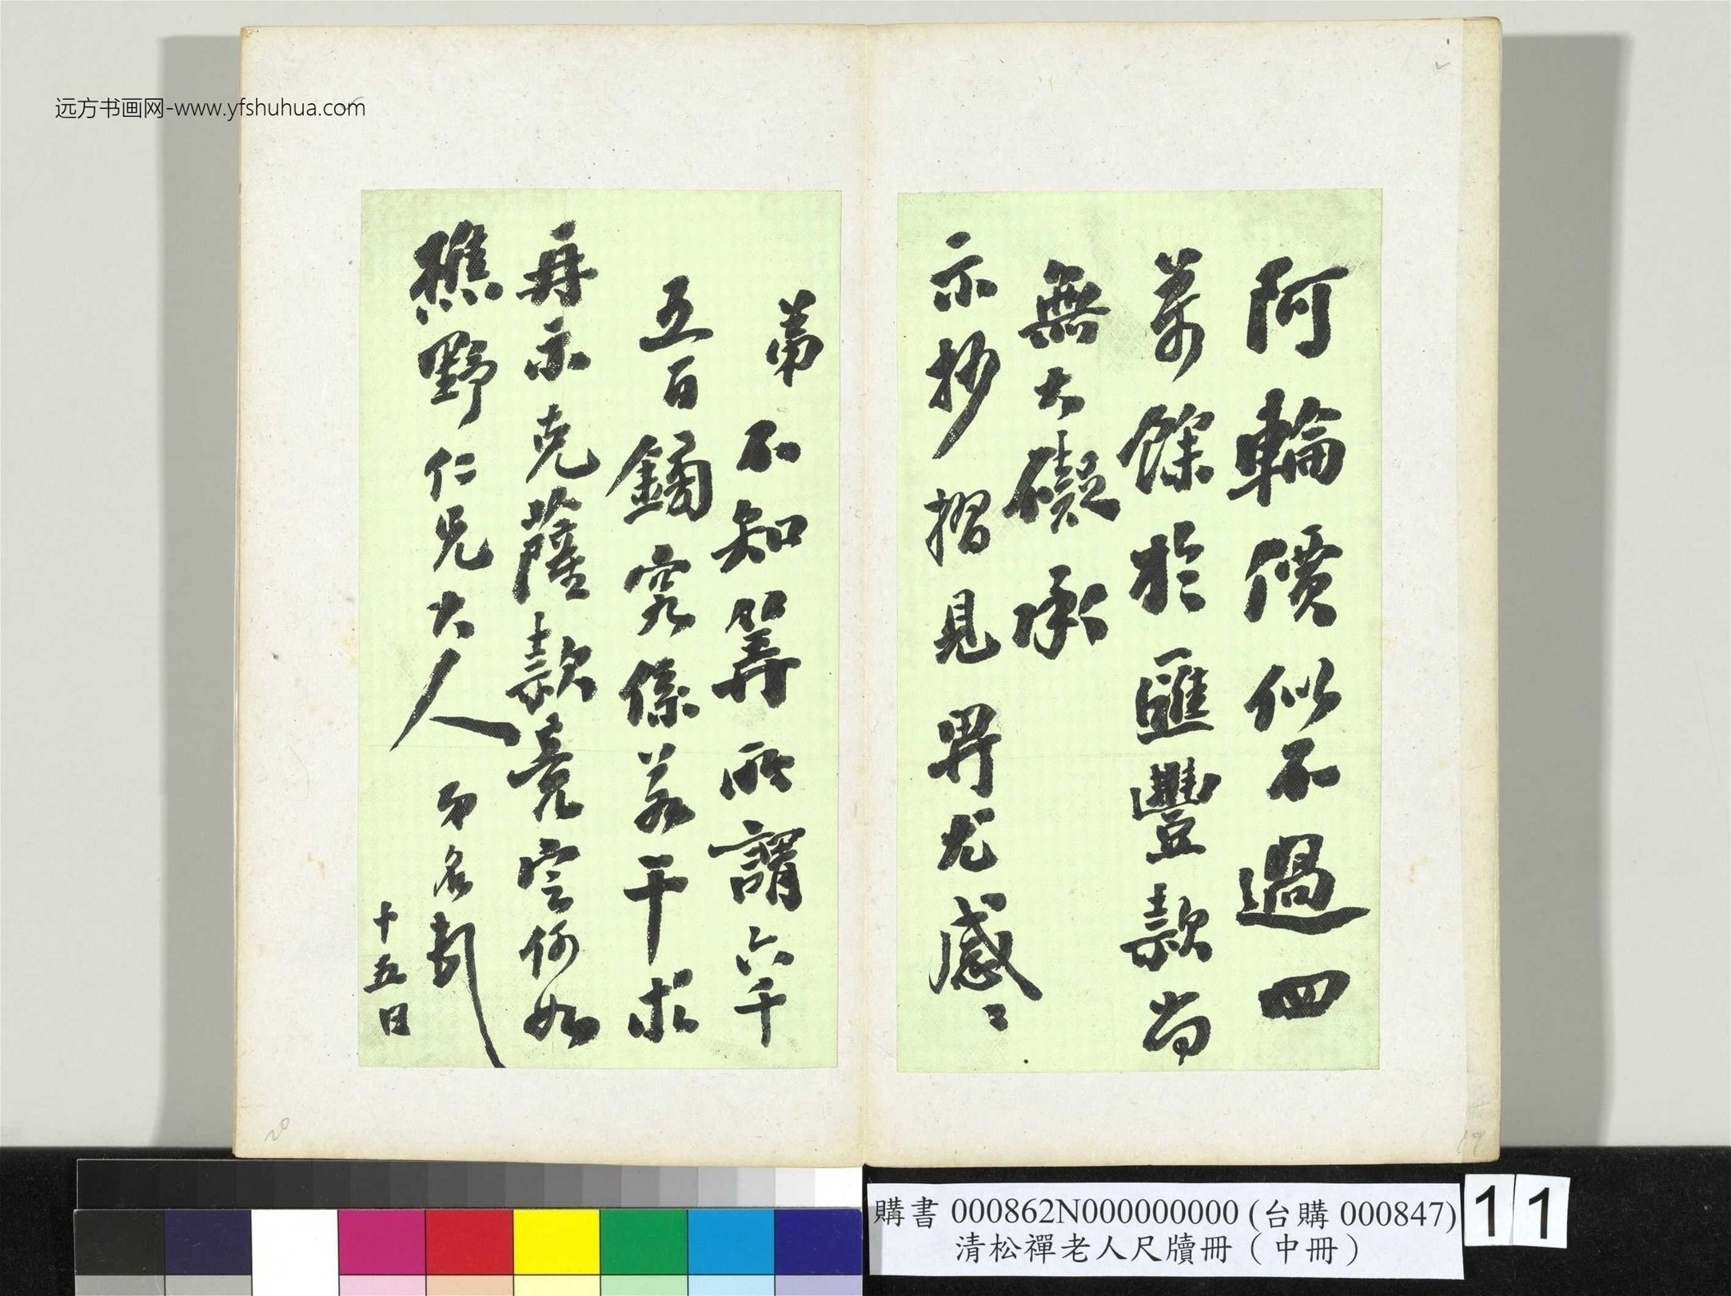 远方书画网-www.yfshuhua.com
阿輪價似不過四
萬餘於匯豐款尚
無大礙承
示抄摺見畀尤感〻
弟
不知籌所謂六千
五百鏑究係若干求
再示克薩款竟空何如
樵野仁兄大人
弟名頓
十五日
購書 000862N000000000 (台購 000847)
清松禪老人尺牘冊（中冊）
11
20
19